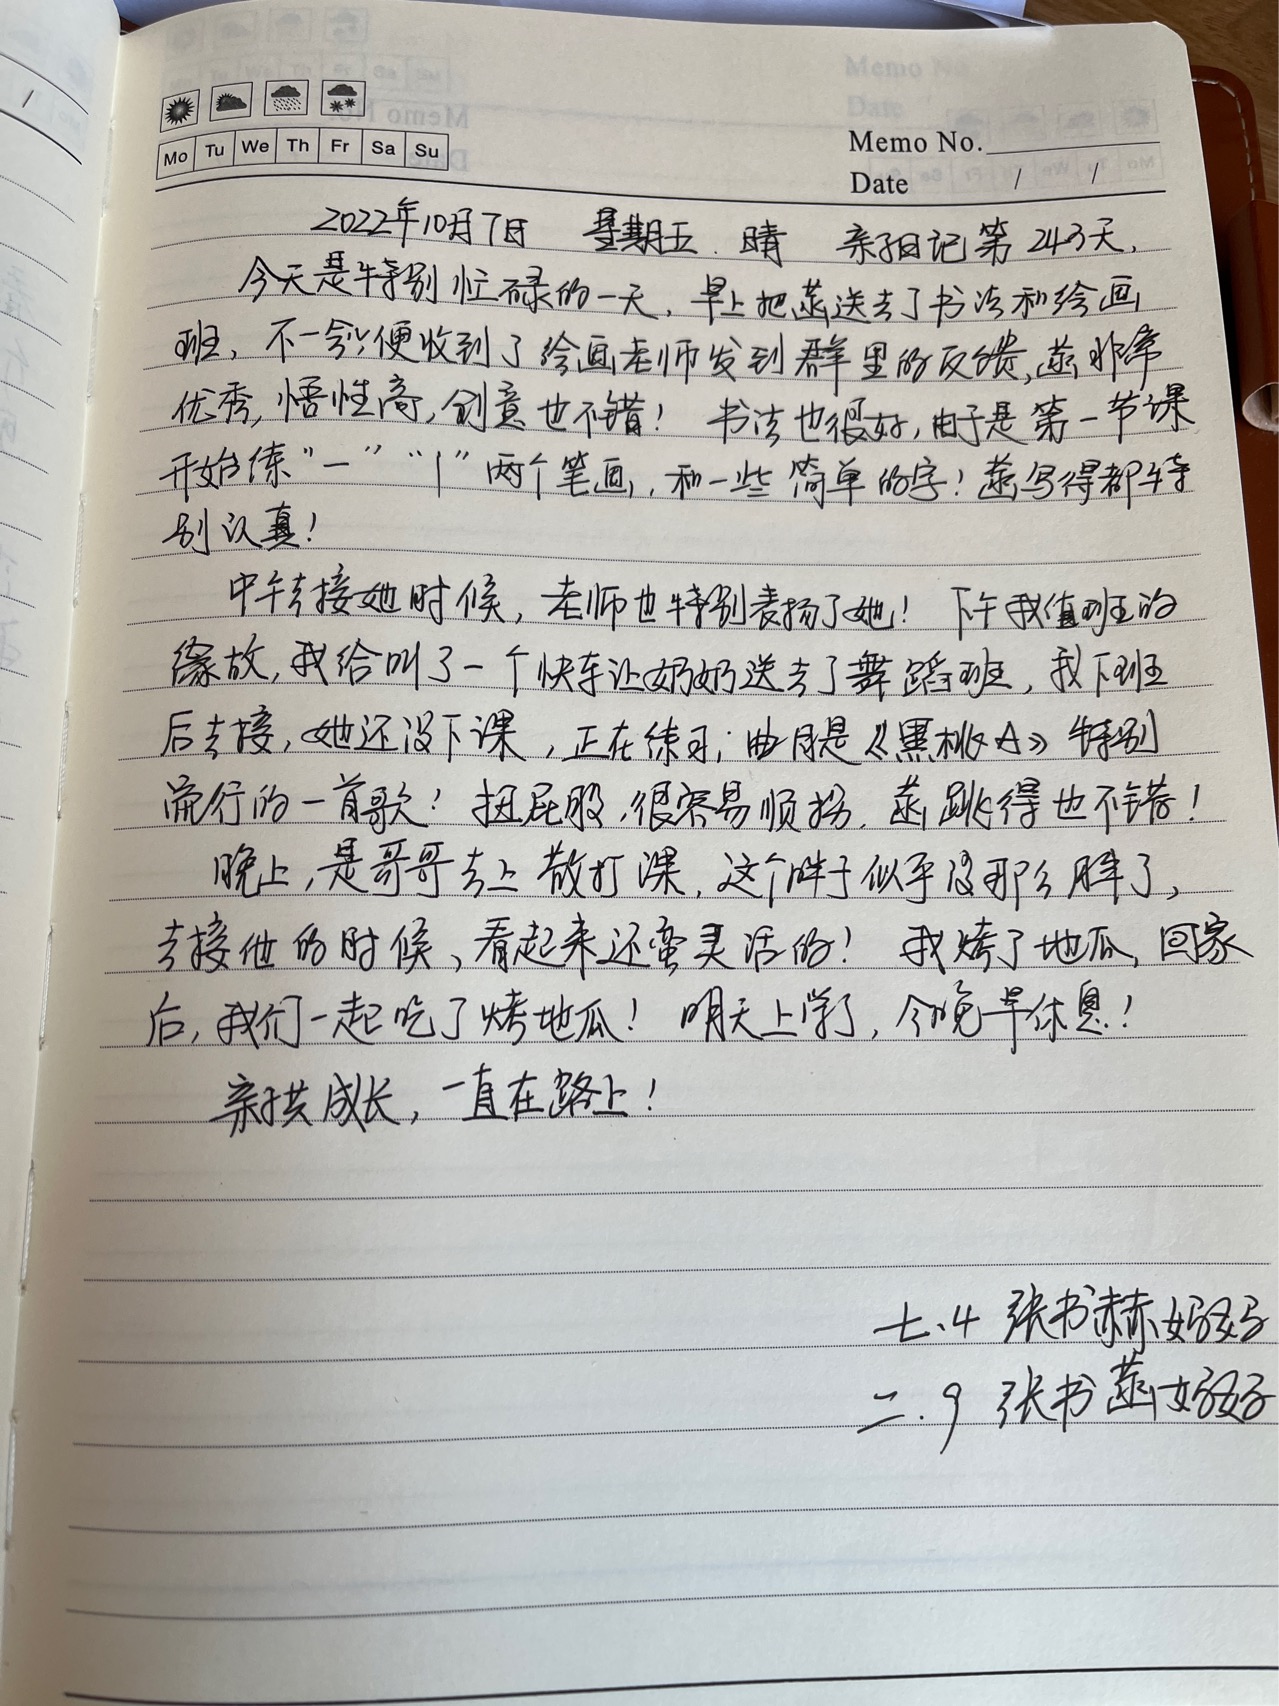 Mo Tu We Th Fr Sa Su
Memo No.
Date / /
2022年10月7日 星期五. 晴 亲子日记第243天.
今天是特别忙碌的一天,早上把菡送去了书法和绘画
班,不一会儿便收到了绘画老师发到群里的反馈,菡非常
优秀,悟性高,创意也不错! 书法也很好,由于是第一节课
开始练“一”“丨”两个笔画,和一些简单的字!菡写得都特
别认真!
中午去接她时候,老师也特别表扬了她! 下午我值班的
缘故,我给叫了一个快车让奶奶送去了舞蹈班,我下班
后去接,她还没下课,正在练习;曲目是《黑桃A》特别
流行的一首歌!扭屁股,很容易顺拐.菡跳得也不错!
晚上,是哥哥去上散打课,这个胖子似乎没那么胖了,
去接他的时候,看起来还蛮灵活的! 我烤了地瓜,回家
后,我们一起吃了烤地瓜! 明天上学了,今晚早休息!
亲子共成长,一直在路上!
七.4 张书赫妈妈
二.9 张书菡妈妈